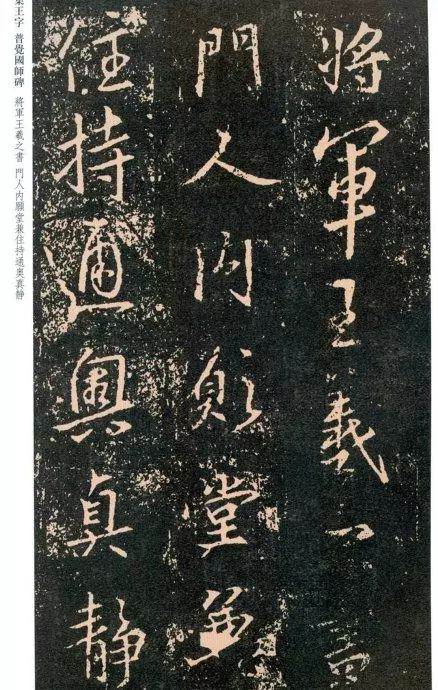 將軍王羲之書
門人内願堂兼
住持通奧真靜
集王字 普覺國師碑 將軍王羲之書 門人内願堂兼住持通奧真靜